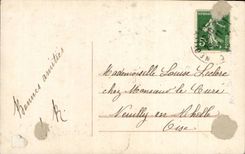 Bonnes amitiés
Mademoiselle Louise Leclerc
chez Monsieur le Curé
Neuilly en Thelle
Oise